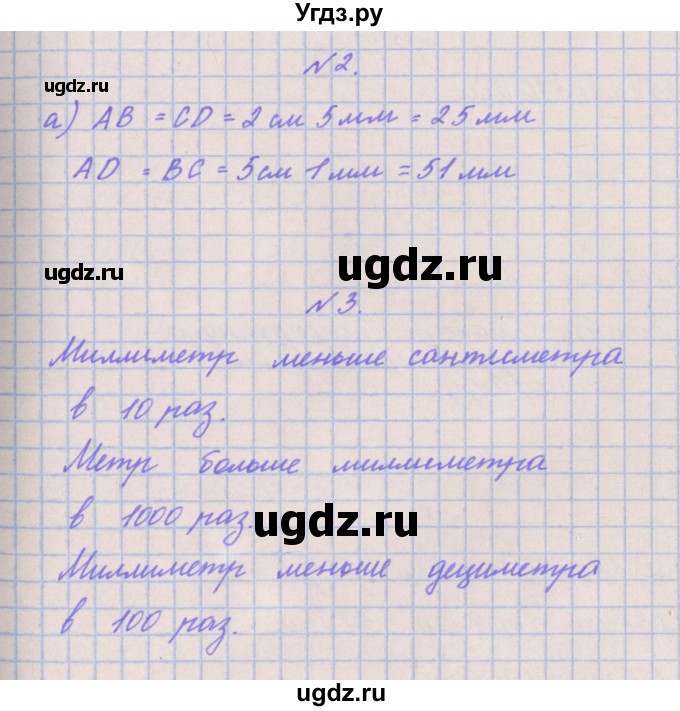 Угдз.ру
№2.
ugdz.ru
а) AB = CD = 2 см 5 мм = 25 мм
AD = BC = 5 см 1 мм = 51 мм
ugdz.ru
ugdz.ru
№3.
Миллиметр меньше сантиметра
в 10 раз.
Метр больше миллиметра
в 1000 раз.
ugdz.ru
Миллиметр меньше дециметра
в 100 раз.
ugdz.ru